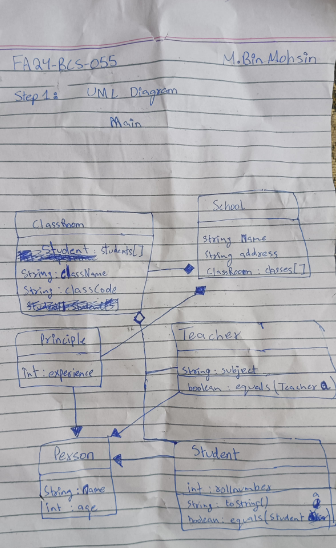 FA24-BCS-055
M.Bin Mohsin
Step1: UML Diagram
Main
ClassRoom
Student students[]
String: className
String: classCode
School
String Name
String address
ClassRoom:
Principle
int: experience
Teacher
String: subject
boolean: equals(Teacher a
Person
String: Name
int: age
Student
int: rollnumber
String toString()
boolean: equals(Student